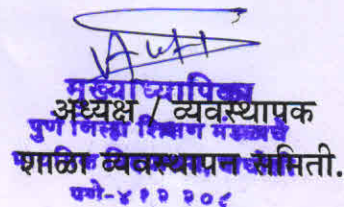 मुख्याध्यापिका
अध्यक्ष / व्यवस्थापक
पुणे जिल्हा शिक्षण मंडळाचे
शाळा व्यवस्थापन समिती.
पुणे-४११ २०८